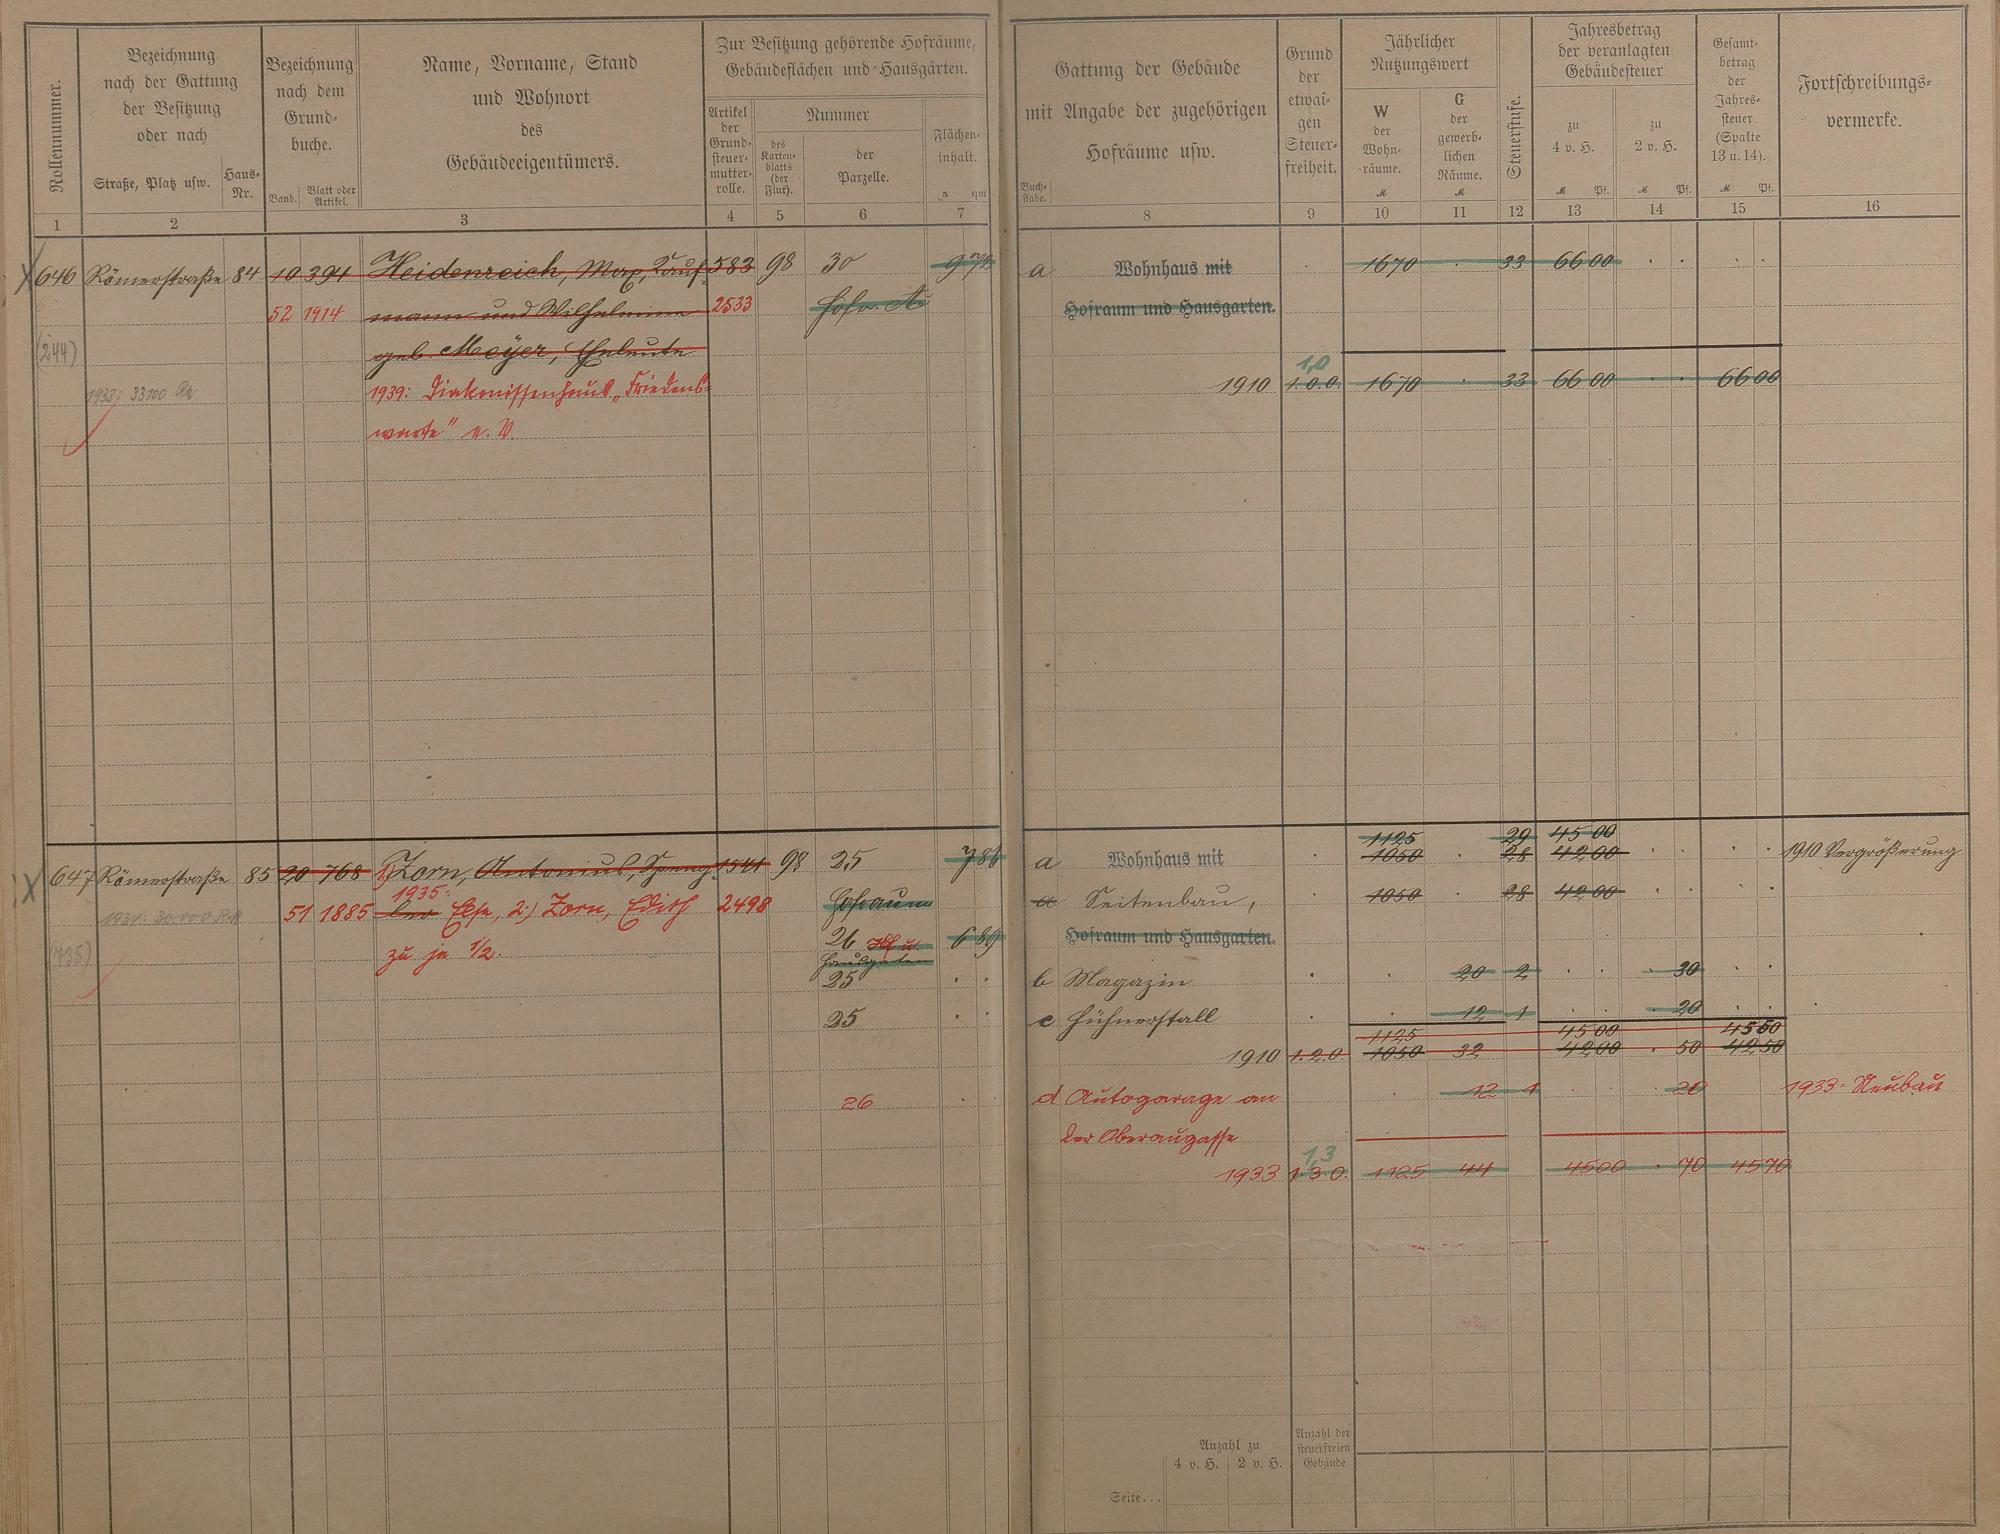 Rollennummer.
Bezeichnung
nach der Gattung
der Besitzung
oder nach
Straße, Platz usw.
Haus-
Nr.
Bezeichnung
nach dem
Grund-
buche.
Band.
Blatt oder
Artikel.
Name, Vorname, Stand
und Wohnort
des
Gebäudeeigentümers.
Zur Besitzung gehörende Hofräume,
Gebäudeflächen und Hausgärten.
Artikel
der
Grund-
steuer-
mutter-
rolle.
Nummer
des
Karten-
blatts
(der
Flur).
der
Parzelle.
Flächen-
inhalt.
a qm
1 2 3 4 5 6 7
646 Römerstraße 84 10 394 Heidenreich, Max, Kauf- 583 98 30 9 72
52 1914 mann und Wilhelmine 2533 Hofr. A
(244) geb. Mayer, Eheleute
1938: 33100 RM 1939: Diakonissenhaus „Friedens-
warte" e. V.
647 Römerstraße 85 20 768 1) Zorn, Antonius, Speng- 1541 98 25 7 86
1935:
1934: 30000 RM 51 1885 ler Else, 2.) Zorn, Edith 2498 Hofraum
(735) zu je 1/2. 26 Hof u. 6 89
Hausgarten
25 . .
25 . .
26 .
Buch-
stabe.
Gattung der Gebäude
mit Angabe der zugehörigen
Hofräume usw.
Grund
der
etwai-
gen
Steuer-
freiheit.
Jährlicher
Nutzungswert
W
der
Wohn-
räume.
M
G
der
gewerb-
lichen
Räume.
M
Steuerstufe.
Jahresbetrag
der veranlagten
Gebäudesteuer
zu
4 v. H.
M Pf.
zu
2 v. H.
M Pf.
Gesamt-
betrag
der
Jahres-
steuer.
(Spalte
13 u. 14).
M Pf.
Fortschreibungs-
vermerke.
8 9 10 11 12 13 14 15 16
a Wohnhaus mit . 1670 . 33 66 00 . . . .
Hofraum und Hausgarten.
1,0
1910 1.0.0. 1670 . 33 66 00 . . 66 00
1125 29 45 00
a Wohnhaus mit . 1050 . 28 42 00 . . . . 1910 Vergrößerung
a Seitenbau, 1050 . 28 42 00 . . . .
Hofraum und Hausgarten.
b Magazin . . 20 2 . . . 30 . .
c Hühnerstall . . 12 1 . . . 20 . . .
1125 45 00 45 50
1910 1.2.0. 1050 32 42 00 . 50 42 50
d Autogarage an 12 1 . . 20 1933: Neubau
der Oberaugasse
1,3
1933 1.3.0. 1125 44 45 00 . 70 45 70
Anzahl zu
4 v. H. 2 v. H.
Anzahl der
steuerfreien
Gebäude
Seite...